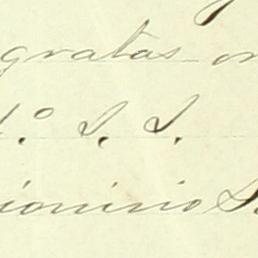 gratas
S. S.
ionisio S.